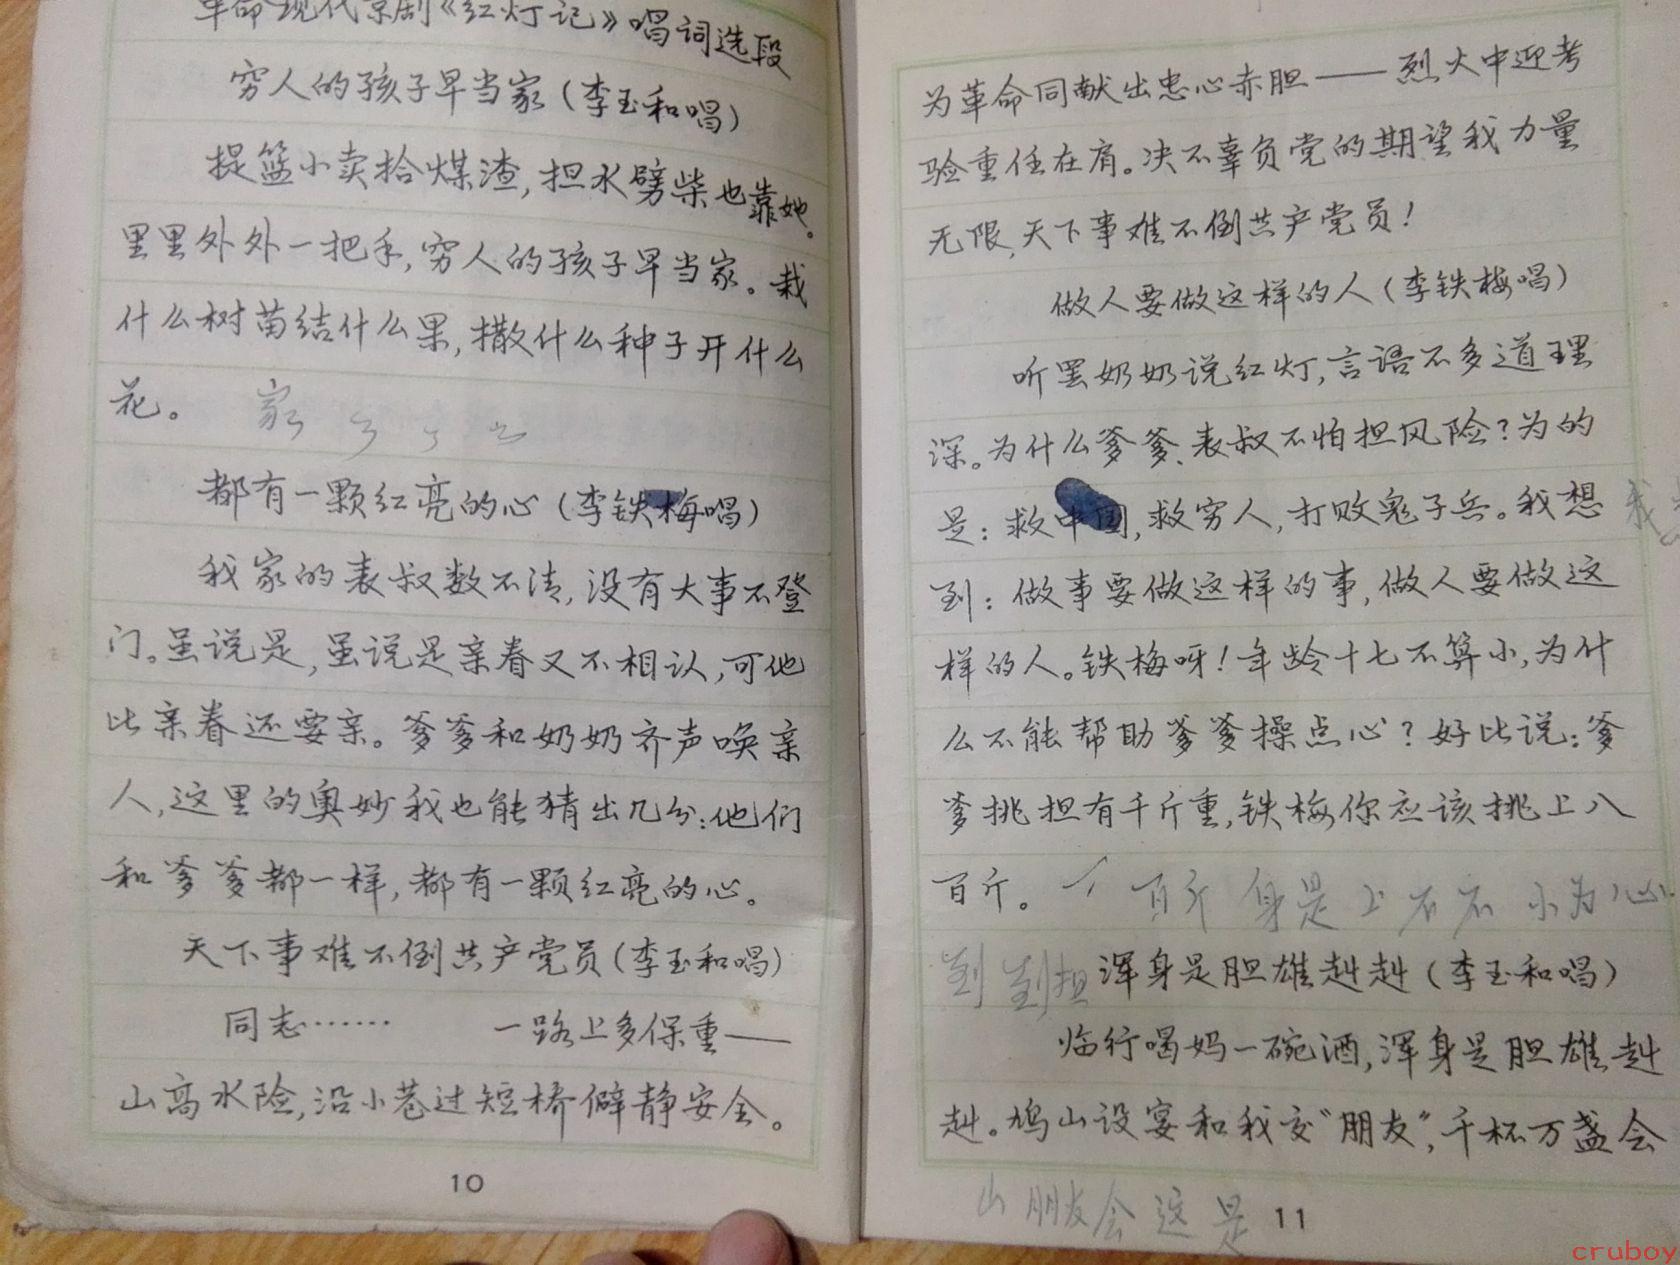 革命现代京剧《红灯记》唱词选段
穷人的孩子早当家（李玉和唱）
提篮小卖拾煤渣，担水劈柴也靠她。
里里外外一把手，穷人的孩子早当家。栽
什么树苗结什么果，撒什么种子开什么
花。 家
都有一颗红亮的心（李铁梅唱）
我家的表叔数不清，没有大事不登
门。虽说是，虽说是亲眷又不相认，可他
比亲眷还要亲。爹爹和奶奶齐声唤亲
人，这里的奥妙我也能猜出几分：他们
和爹爹都一样，都有一颗红亮的心。
天下事难不倒共产党员（李玉和唱）
同志…… 一路上多保重——
山高水险，沿小巷过短桥僻静安全。
10
为革命同献出忠心赤胆——烈火中迎考
验重任在肩。决不辜负党的期望我力量
无限，天下事难不倒共产党员！
做人要做这样的人（李铁梅唱）
听罢奶奶说红灯，言语不多道理
深。为什么爹爹、表叔不怕担风险？为的
是：救中国，救穷人，打败鬼子兵。我想 我
到：做事要做这样的事，做人要做这
样的人。铁梅呀！年龄十七不算小，为什
么不能帮助爹爹操点心？好比说：爹
爹挑担有千斤重，铁梅你应该挑上八
百斤。 百斤 身是 上 不不 小为心
到 到担 浑身是胆雄赳赳（李玉和唱）
临行喝妈一碗酒，浑身是胆雄赳
赳。鸠山设宴和我交“朋友”，千杯万盏会
山 朋友会 这 是
11
cruboy